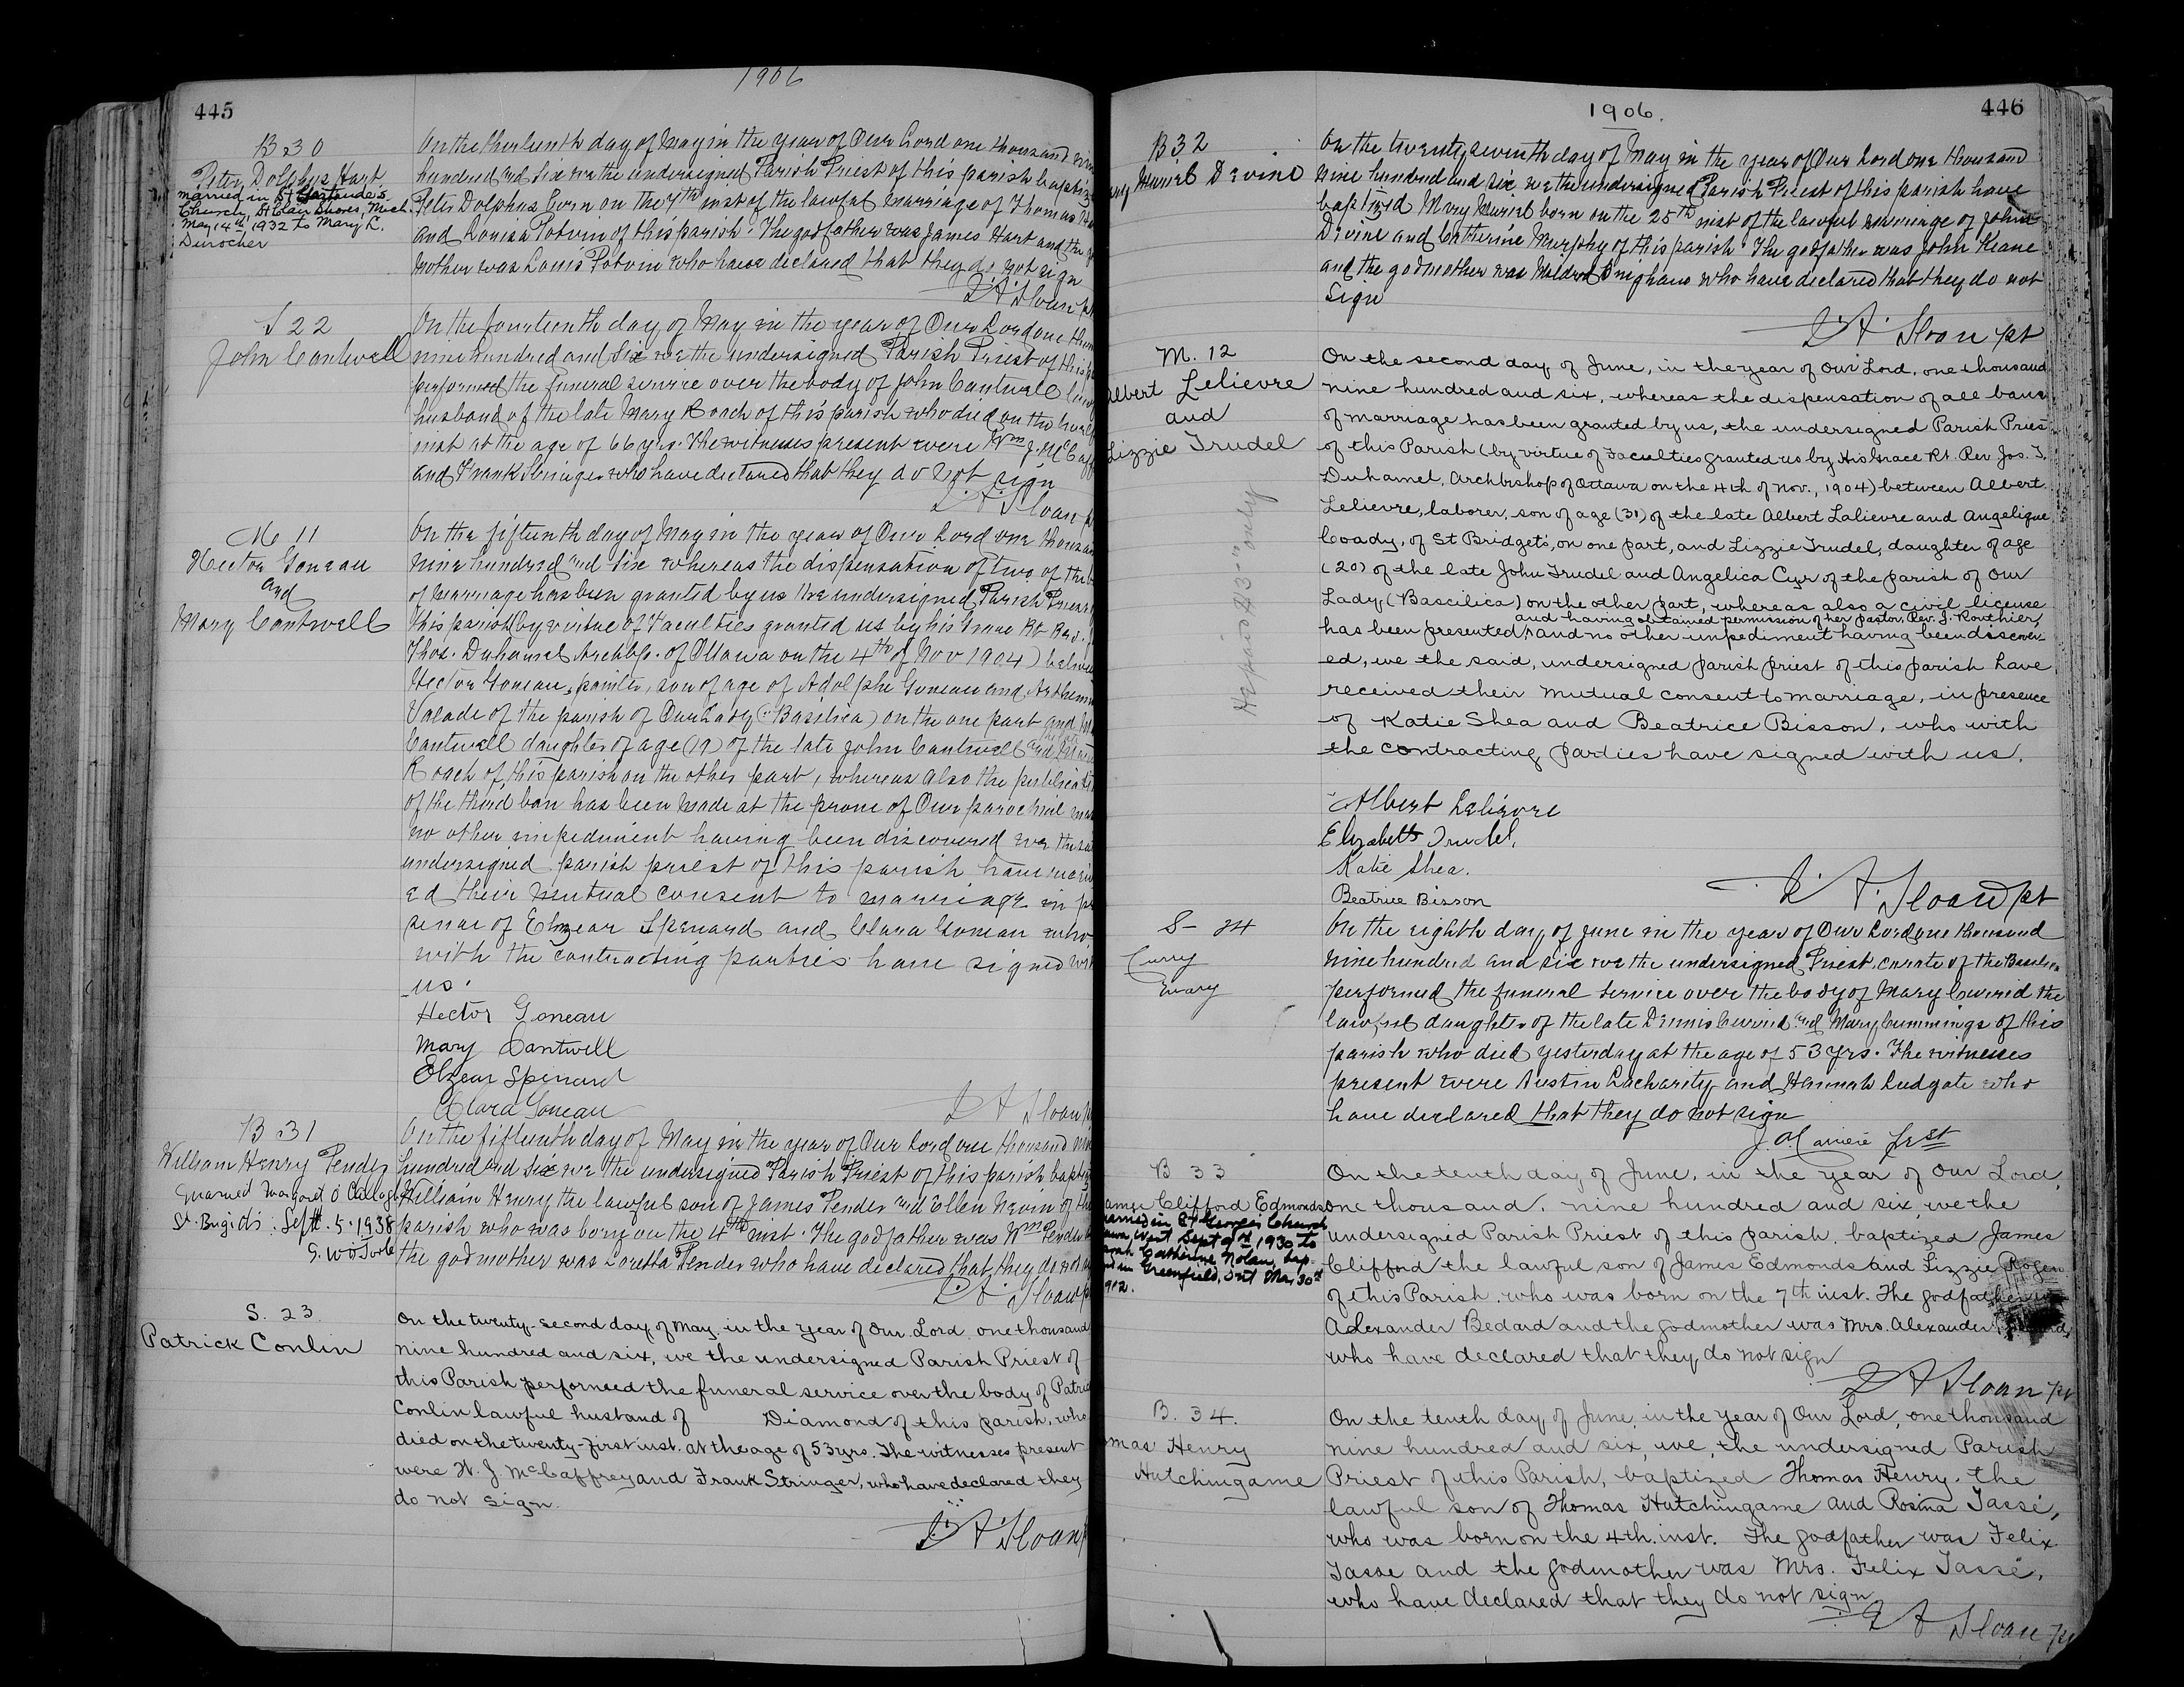 1906
445
B 30
Peter Dolphus Hart
married in St Gertrude's
Church, St Clair Shores, Mich.
May 14th, 1932 to Mary L.
Durocher
On the thirteenth day of May in the year of Our Lord one thousand nine
hundred and six we the undersigned Parish Priest of this parish baptized
Peter Dolphus born on the 7th inst of the lawful marriage of Thomas
and Louisa Potvin of this parish. The godfather was James Hart and the
mother was Louis Potvin who have declared that they do not sign
S 22
John Cantwell
On the fourteenth day of May in the year of Our Lord one
nine hundred and six we the undersigned Parish Priest of this
performed the funeral service over the body of John Cantwell
husband of the late Mary Roach of this parish who died on the
inst at the age of 66 yrs. The witnesses present were Wm J. McCaff
and Frank Stringer who have declared that they do not sign
M 11
Hector Goneau
and
Mary Cantwell
On the fifteenth day of May in the year of Our Lord one thousand
nine hundred and six whereas the dispensation of two of the
of marriage has been granted by us the undersigned Parish Priest
this parish (by virtue of Faculties granted us by his Grace Rt Rev. J.
Thos. Duhamel Archbp. of Ottawa on the 4th of Nov 1904) between
Hector Goneau, painter, son of age of Adolphe Goneau and
Valade of the parish of Our Lady (Basilica) on the one part and
Cantwell daughter of age (19) of the late John Cantwell and
Roach of this parish on the other part, whereas also the publication
of the third ban has been made at the prone of Our parochial mass
no other impediment having been discovered we the said
undersigned parish priest of this parish have receiv
ed their mutual consent to marriage in pre
sence of Elzear Spenard and Clara Goneau who
with the contracting parties have signed with
us.
Hector Goneau
Mary Cantwell
Elzear Spenard
Clara Goneau
B 31
William Henry Pender
married Margaret O'Callagh
St. Brigid's: Sept. 5. 1938
On the fifteenth day of May in the year of Our Lord one thousand nine
hundred and six we the undersigned Parish Priest of this parish baptized
William Henry the lawful son of James Pender and Ellen Nevin of this
parish who was born on the 4th inst. The godfather was Wm Pender
the godmother was Loretta Pender who have declared that they do not
S. 23
Patrick Conlin
On the twenty-second day of May, in the year of Our Lord, one thousand
nine hundred and six, we the undersigned Parish Priest of
this Parish performed the funeral service over the body of Patrick
Conlin lawful husband of Diamond of this parish, who
died on the twenty-first inst. at the age of 53 yrs. The witnesses present
were W. J. McCaffrey and Frank Stringer, who have declared they
do not sign.
1906.
446
B 32
Muriel Devine
On the twenty seventh day of May in the year of Our Lord one thousand
nine hundred and six we the undersigned Parish Priest of this parish have
baptized Mary Muriel born on the 25th inst of the lawful marriage of John
Devine and Catherine Murphy of this parish. The godfather was John Keane
and the godmother was Mildred Bingham who have declared that they do not
sign
M. 12
Albert Lelievre
and
Lizzie Trudel
On the second day of June, in the year of Our Lord, one thousand
nine hundred and six, whereas the dispensation of all bans
of marriage has been granted by us, the undersigned Parish Priest
of this Parish (by virtue of Faculties granted us by His Grace Rt. Rev. Jos. T.
Duhamel, Archbishop of Ottawa on the 4th of Nov., 1904) between Albert
Lelievre, laborer, son of age (31) of the late Albert Lalievre and Angelique
Coady, of St Bridget's, on one part, and Lizzie Trudel, daughter of age
(20) of the late John Trudel and Angelica Cyr of the parish of Our
Lady, (Bascilica) on the other part, whereas also a civil license
and having obtained permission of her pastor, Rev. J. Routhier,
has been presented, and no other impediment having been discover-
ed, we the said, undersigned parish priest of this parish have
received their mutual consent to marriage, in presence
of Katie Shea and Beatrice Bisson, who with
the contracting parties have signed with us.
Albert Lelievre
Elizabeth Trudel,
Katie Shea.
Beatrice Bisson
S- 24
Curry
Mary
On the eighth day of June in the year of Our Lord one thousand
nine hundred and six we the undersigned Priest, curate of the Basilica
performed the funeral service over the body of Mary Currid the
lawful daughter of the late Dennis Currid and Mary Cummings of this
parish who died yesterday at the age of 53 yrs. The witnesses
present were Austin Lacharity and Hannah Ludgate who
have declared that they do not sign
B 33
Clifford Edmonds
married in St George's Church
Sept 9th 1930 to
Catherine Nolan, bap.
in Greenfield, Ont Mar 30th
1912.
On the tenth day of June, in the year of Our Lord,
one thousand, nine hundred and six, we the
undersigned Parish Priest of this parish, baptized James
Clifford the lawful son of James Edmonds and Lizzie
of this Parish, who was born on the 7th inst. The godfather was
Alexander Bedard and the godmother was Mrs. Alexander
who have declared that they do not sign
B. 34.
Henry
Hutchingame
On the tenth day of June, in the year of Our Lord, one thousand
nine hundred and six, we, the undersigned Parish
Priest of this Parish, baptized Thomas Henry, the
lawful son of Thomas Hutchingame and Rosina Tassé,
who was born on the 4th. inst. The godfather was Felix
Tasse and the godmother was Mrs. Felix Tassé,
who have declared that they do not sign